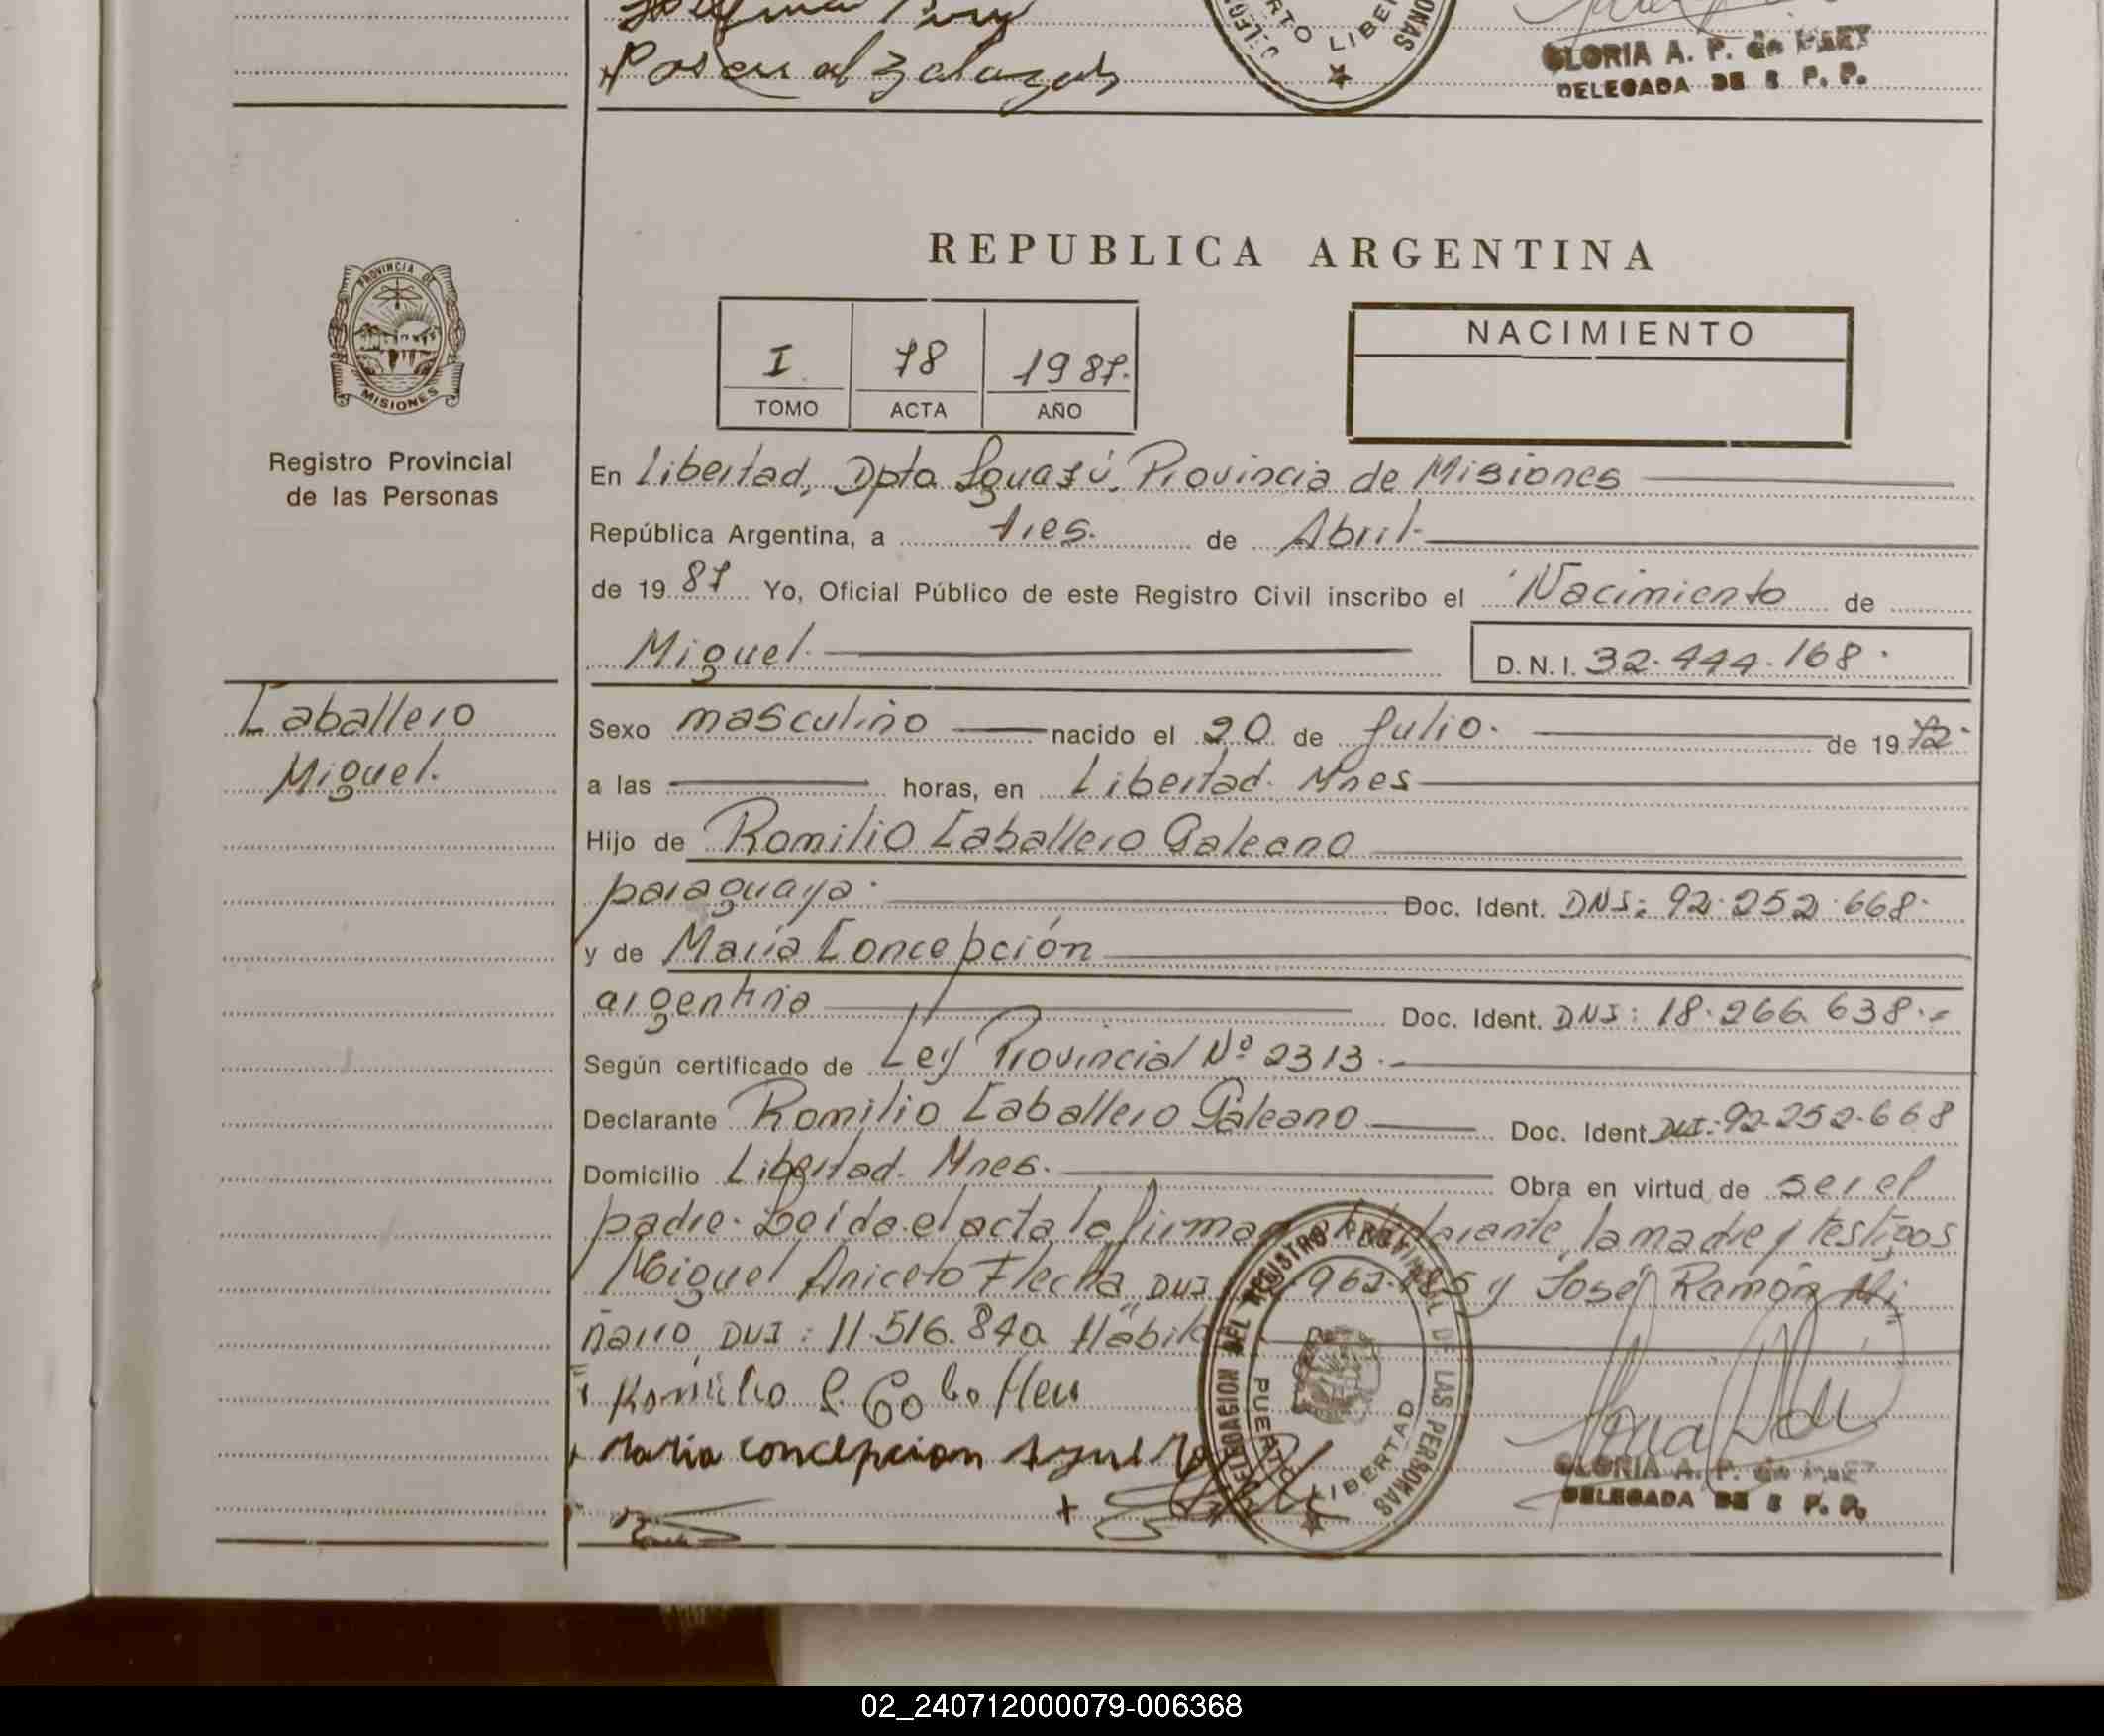 Pascual Zalazar
PUERTO LIBERTAD
GLORIA A. P. de PAEZ
DELEGADA DE R P. P.
REPUBLICA ARGENTINA
PROVINCIA DE
MISIONES
Registro Provincial
de las Personas
I 78 1987.
TOMO ACTA AÑO
NACIMIENTO
En Libertad, Dpto Iguazú. Provincia de Misiones
República Argentina, a tres. de Abril.
de 19 87 Yo, Oficial Público de este Registro Civil inscribo el Nacimiento de
Miguel D.N.I. 32.444.168.
Caballero
Miguel.
Sexo masculino nacido el 20 de Julio. de 19 72.
a las horas, en Libertad. Mnes
Hijo de Romilio Caballero Galeano
paraguaya. Doc. Ident. DNI: 92.252.668.
y de María Concepción
argentina Doc. Ident. DNI: 18.266.638.-
Según certificado de Ley Provincial Nº 2313.-
Declarante Romilio Caballero Galeano Doc. Ident. DNI: 92.252.668
Domicilio Libertad. Mnes. Obra en virtud de ser el
padre. Leída el acta la firman el declarante, la madre y testigos
Miguel Aniceto Flecha DNI 962. y José Ramón Mi
ñarro, DNI: 11.516.840. Hábiles
Romilio C. Caballero
Maria concepcion
DELEGACION DEL REGISTRO PROVINCIAL DE LAS PERSONAS
PUERTO LIBERTAD
GLORIA A. P. de PAEZ
DELEGADA DE R P. P.
02_240712000079-006368